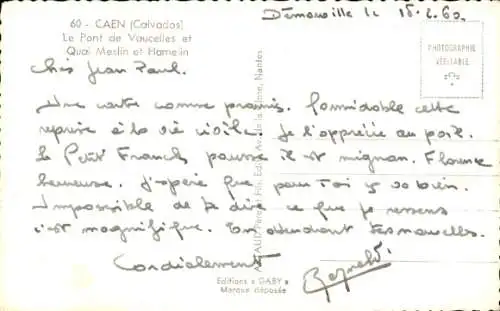 60 - CAEN (Calvados)
Le Pont de Vaucelles et
Quai Meslin et Hamelin
Démouville le 18.6.60
PHOTOGRAPHIE
VÉRITABLE
Cher Jean Paul.
Une carte comme promis. Formidable cette
reprise à la vie civile. Je l'apprécie au poil.
Le Petit Franck pousse il est mignon. Florence
heureuse. J'espère que pour Toi ça va bien.
Impossible de te dire ce que je ressens
c'est magnifique. En attendant tes nouvelles.
Cordialement
Editions « GABY »
Marque déposée